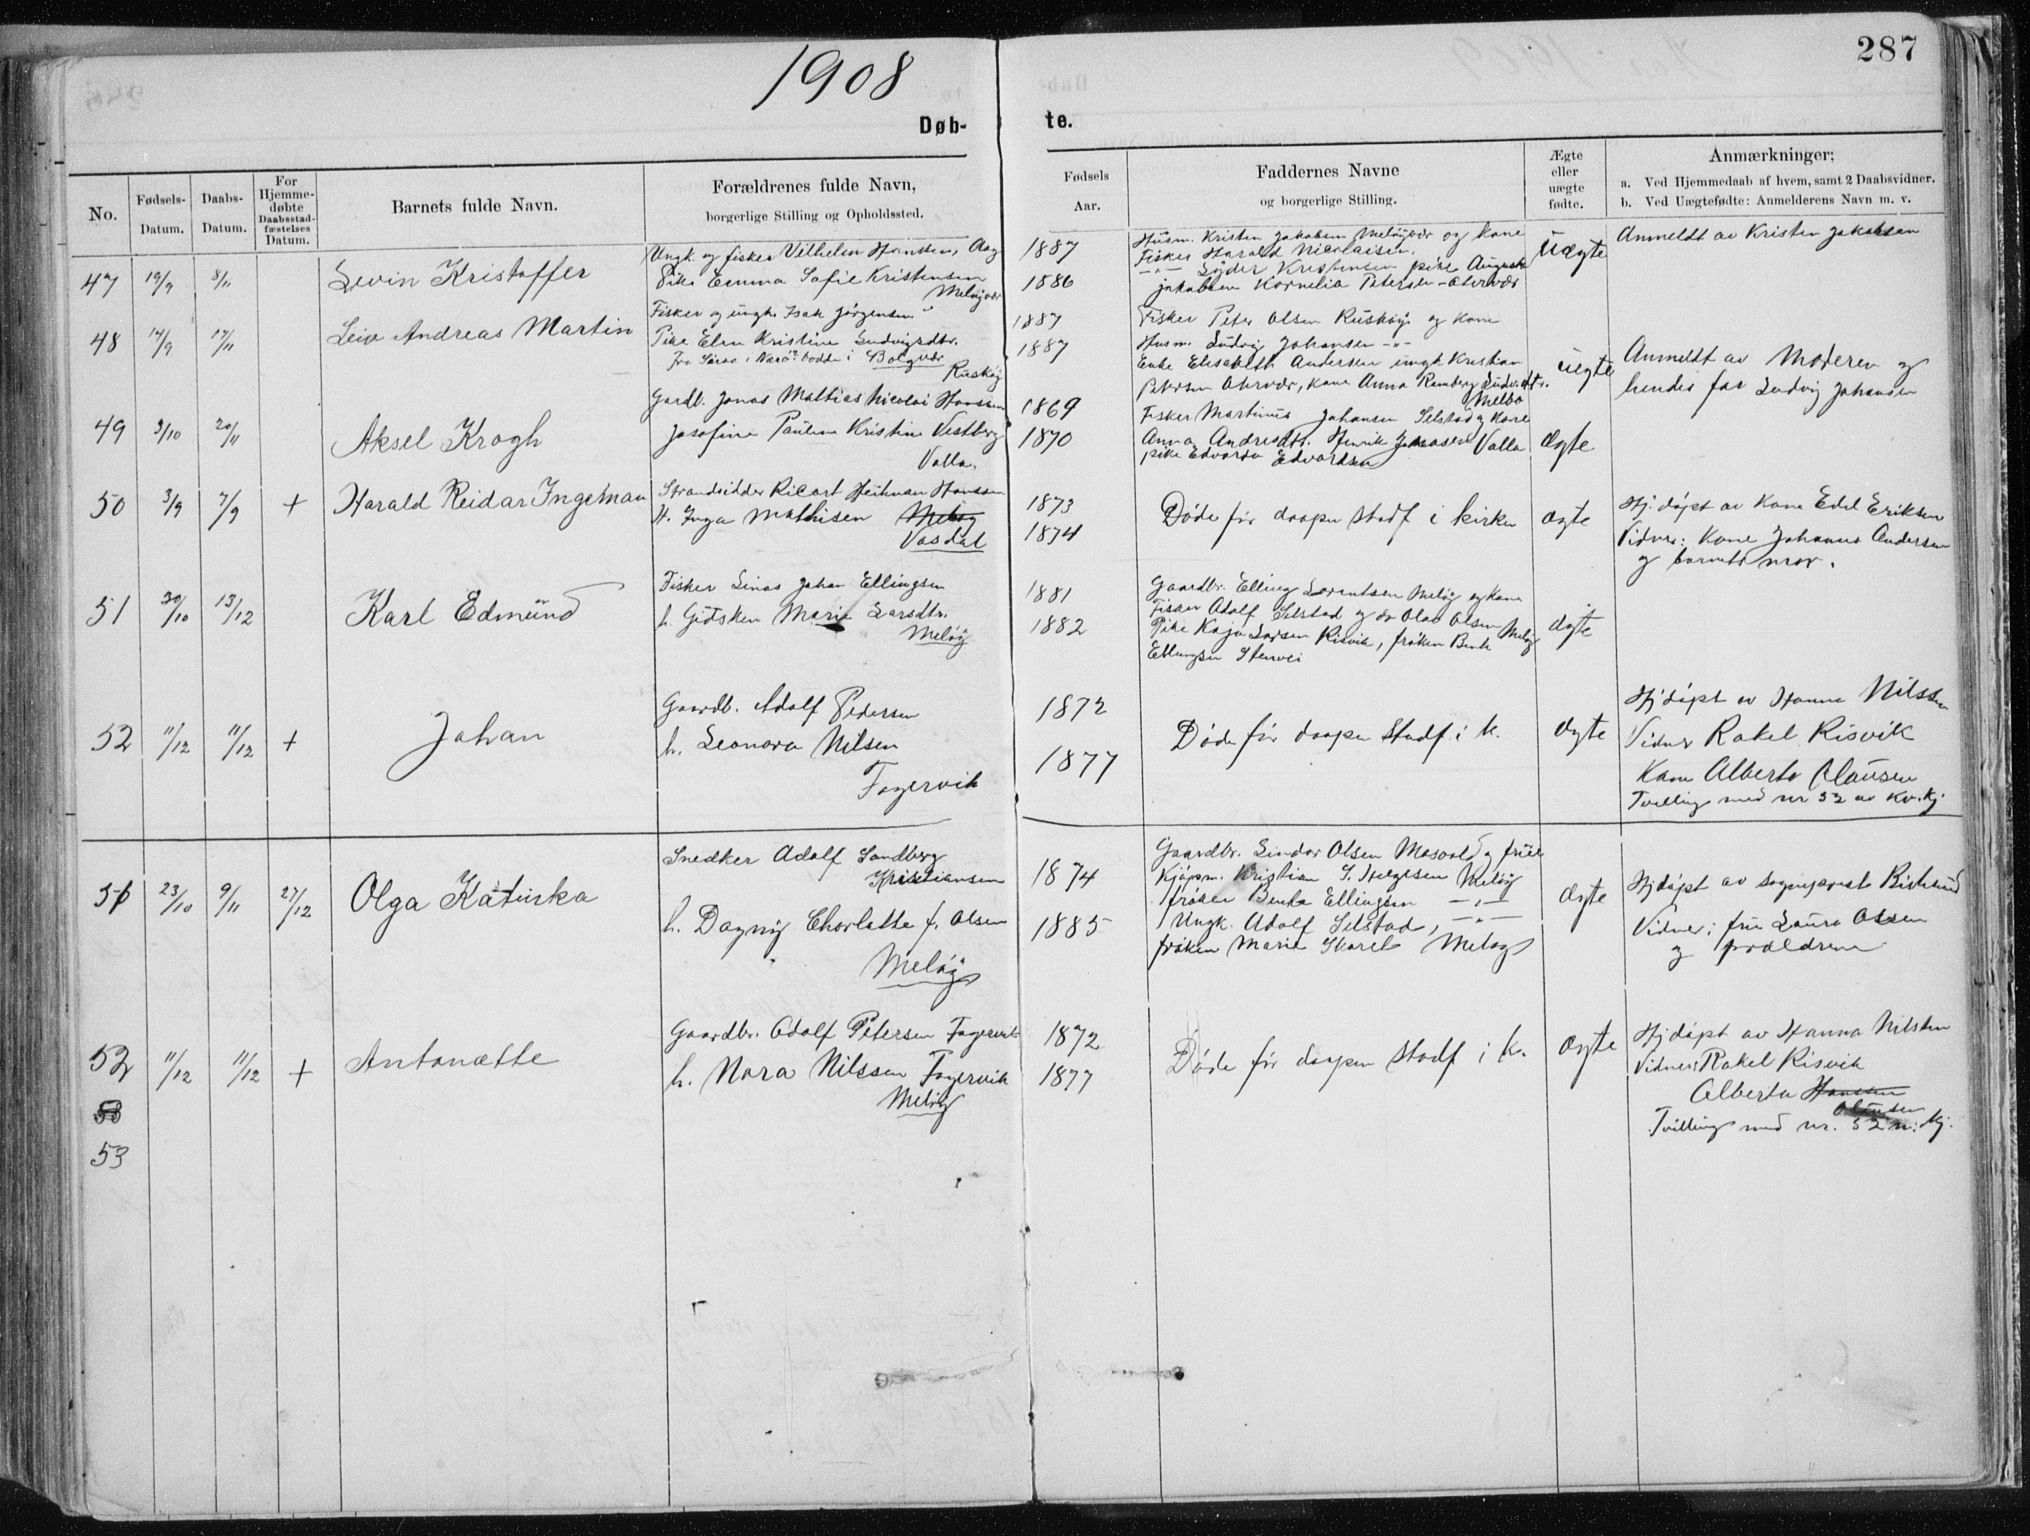 1908
287
Døb-
te.
No.
Fødsels-
Datum.
Daabs-
Datum.
For
Hjemme-
døbte
Daabsstad-
fæstelses
Datum.
Barnets fulde Navn.
Forældrenes fulde Navn,
borgerlige Stilling og Opholdssted.
Fødsels
Aar.
Faddernes Navne
og borgerlige Stilling.
Ægte
eller
uægte
fødte.
Anmærkninger:
a. Ved Hjemmedaab af hvem, samt 2 Daabsvidner.
b. Ved Uægtefødte: Anmelderens Navn m. v.
47 19/9 8/11 Levin Kristoffer
Ungk. og fisker Vilhelm Hansen,
Pike Emma Sofie Kristensen
Meløyvær
1887
1886
Husm. Kristen Jakobsen Meløyvær og kone
Fisker Harald Nicolaisen
Kristensen pike
Jakobsen Kornelia Petersen
Uægte
Anmeldt av Kristen Jakobsen
48 14/9 17/11 Leiv Andreas Martin
Fisker og ungk. Isak Jørgensen
Pike Elen Kristine Ludvigsdtr.
Bolgvær
Ruskøy
1887
1887
Fisker Peter Olsen Ruskøy og kone
Husm. Ludvig Johansen
Enke Elisabeth Andersen ungk. Kristian
Petersen kone Anna
Melbo
uegte
Anmeldt av Moderen og
hendes far Ludvig Johansen
49 3/10 20/11 Aksel Krogh
Gardb. Jonas Mattias Nicolai Hansen
Josefine Pauline Kristine Vestberg
Valla.
1869
1870
Fisker Martinus Johansen Selstad og kone
Anna Andresdtr. Henrik Valla
pike Edvarda Edvardsen
Ægte
50 3/9 7/9 + Harald Reidar Ingeman
Strandsidder Rikart Heitman Hanssen
H. Inga Mathisen Meløy
Vasdal
1873
1874
Døde før daapen stadf i kirken
ægte
Hj. døpt av Kone Edel Eriksen
Vidner: Kone Johanna Andersen
og barnets mor.
51 30/10 13/12 Karl Edmund
Fisker Linas Johan Ellingsen
h. Gidsken Marie Larsdtr.
Meløy
1881
1882
Gaardbr. Elling Lorentsen Meløy og kone
Fisker Adolf Selstad og do Olav Olsen
Pike Kaja Larsen Risvik, frøken Benth Meløy
Ellingsen
ægte
52 11/12 11/12 + Johan
Gaardb. Adolf Pedersen
h. Leonora Nilsen
Fagervik
1872
1877
Døde før daapen stadf. i k.
ægte
Hjdøpt av Hanna Nilssen
Vidner Rakel Risvik
Kone Alberta Clausen
Tvilling med nr 52 av Kv. kj.
51 23/10 9/11 27/12 Olga Katinka
Snedker Adolf Sandberg
Kristiansen
h. Dagny Charlotte f. Olsen
Meløy
1874
1885
Gaardbr. Sindor Olsen Mosvold og frue
Kjøpm. Kristian S. Helgesen Meløy
frøken Benta Ellingsen —"—
Ungk. Adolf Selstad, —"—
frøken Marie Meløy
ægte
Hjdøpt av sogneprest
Vidner: fru Laura Olsen
og forældrene
52 11/12 11/12 + Antonætte
Gaardbr. Adolf Petersen Fagervik
h. Nora Nilssen Fagervik
Meløy
1872
1877
Døde før daapen stadf i k.
ægte
Hjdøpt av Hanna Nilssen
Vidner: Rakel Risvik
Alberta Hanssen
Clausen
Tvilling med nr. 52 m. kj.
53
53